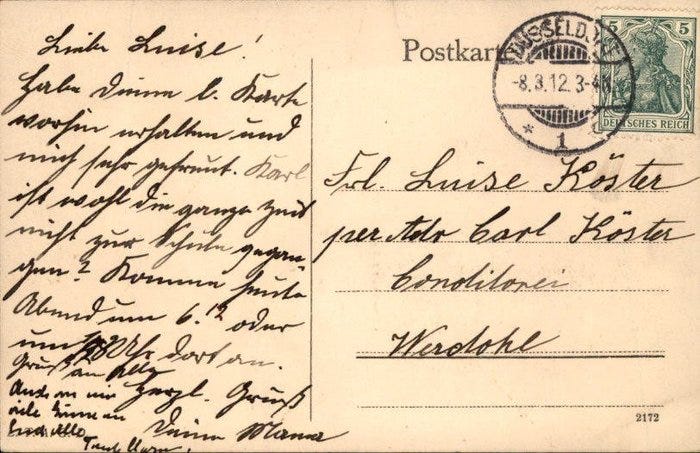 Liebe Luise!
Habe deine l. Karte
vorhin erhalten und
mich sehr gefreut. Karl
ist wohl die ganze Zeit
nicht zur Schule gegan
gen? Komme heute
Abend um 6.12 oder
um Uhr dort an.
Gruß an Alle
Herzl. Gruß
Deine Mama
Auch an
viele
Euch Alle
Postkarte
DÜSSELD
-8.3.12.3-4N.
* 1
5 5
DEUTSCHES REICH
Frl. Luise Köster
per Adr Carl Köster
Conditorei
Werdohl
2172